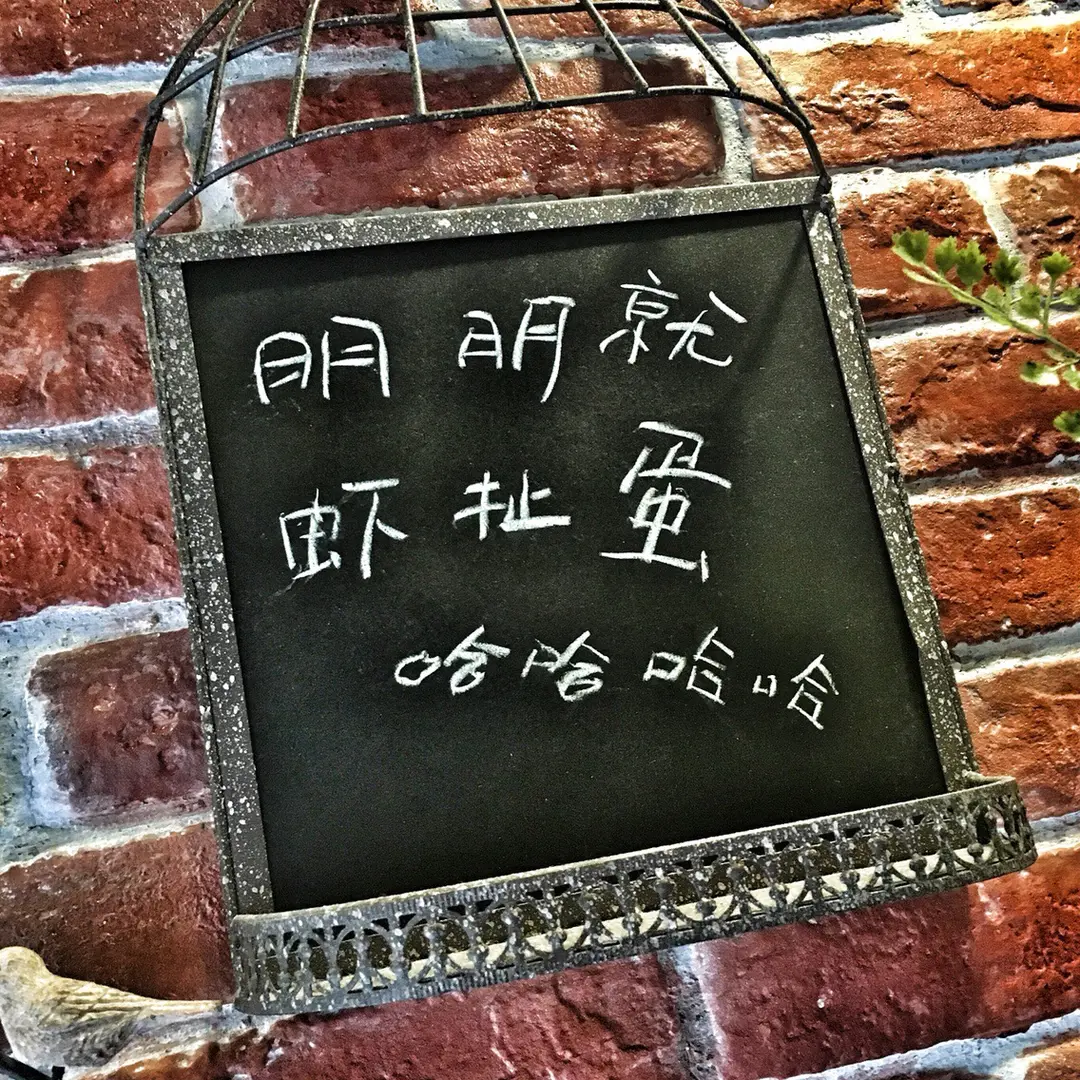 明明就
虾扯蛋
哈哈哈哈